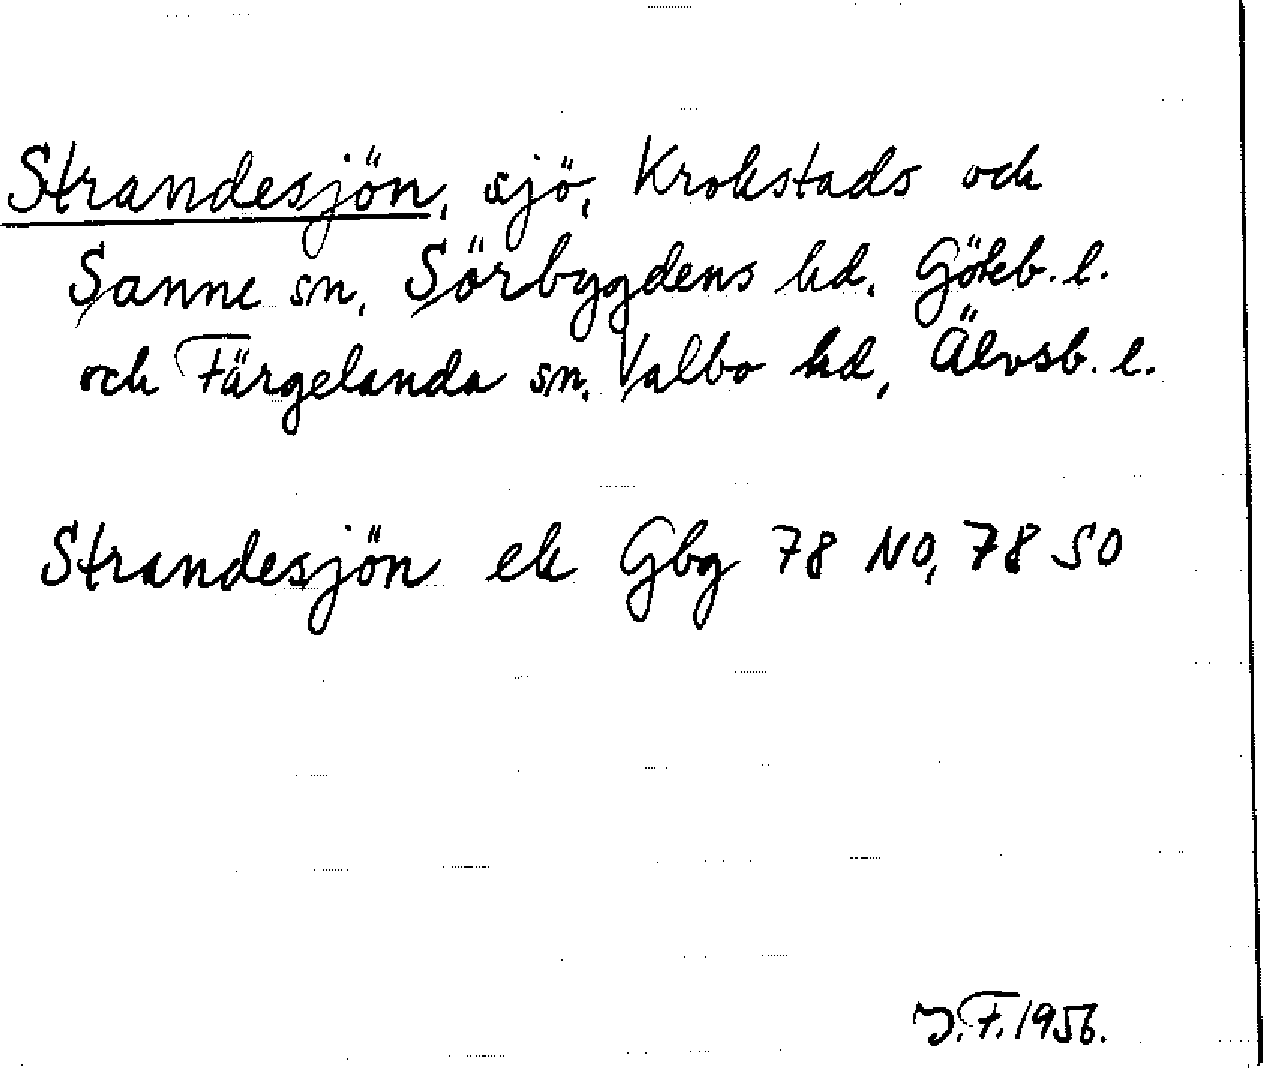 Strandesjön, sjö, Krokstads och
Sanne sn, Sörbygdens hd, Göteb. l.
och Färgelanda sn, Valbo hd, Älvsb. l.
Strandesjön ek Gbg 78 NO, 78 SO
J.F. 1956.